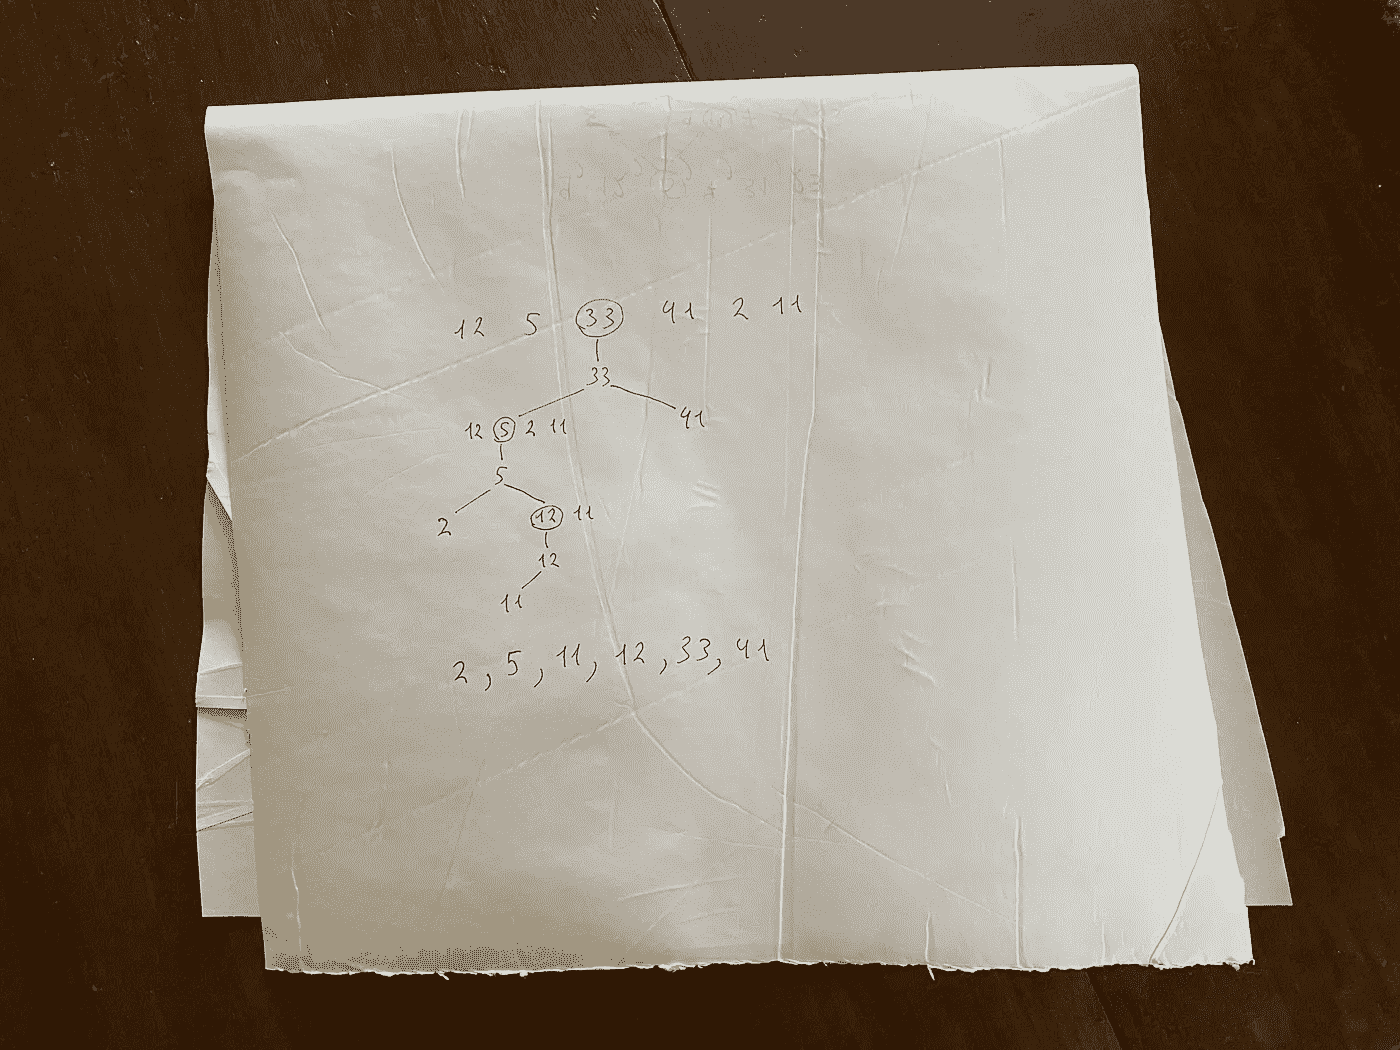 12 5 33 41 2 11
33
12 5 2 11 41
5
2 12 11
12
11
2, 5, 11, 12, 33, 41